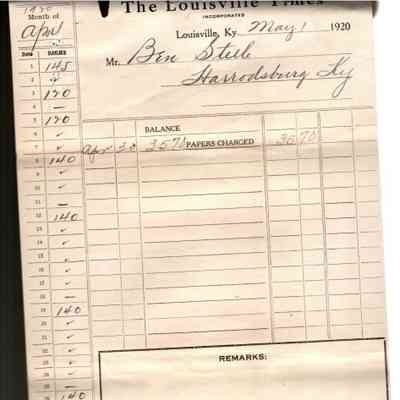 1920
Month of
April
The Louisville Times
INCORPORATED
Louisville, Ky. May 1 1920
Mr. Ben Steele
Harrodsburg Ky
Date DAILIES
1 145
2 ✓
3 120
4 —
5 120
6 ✓
7 ✓
8 140
9 ✓
10 ✓
11 —
12 140
13 ✓
14 ✓
15 ✓
16 ✓
17 ✓
18 —
19 140
20 ✓
21 ✓
22 ✓
23 ✓
24 ✓
25 —
26 140
BALANCE
Apr 30 3570 PAPERS CHARGED 3570
REMARKS: